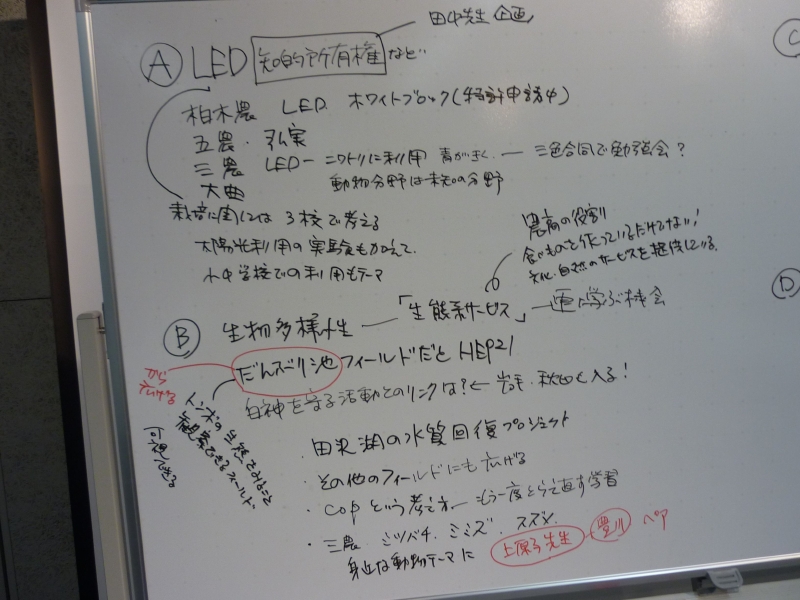 田中先生 企画
Ⓐ LED 知的所有権 など
柏木農 LED ホワイトブロック(特許申請中)
五農・弘実
三農 LED ー ニワトリに利用 青がきく. ー 三色合同で勉強会?
動物分野は未知の分野
大曲
栽培に関しては 3校で考える
太陽光利用の実験も加えて.
小中学校での利用もテーマ
農高の役割
食べものを作っているだけでない!
文化・自然のサービスを提供している.
Ⓑ 生物多様性 ー 「生態系サービス」 ー 更に学ぶ機会
だんぶり池 フィールドだと HEP21
から
広げる
白神を守る活動とのリンクは?← 岩手・秋田も入る!
トンボの生態でみること
観察できるフィールド
何が見える
・田沢湖の水質回復プロジェクト
・その他のフィールドにも広げる
・COP という考え方 ー もう一度とらえ直す学習
・三農 ミツバチ. ミミズ. スズメ.
身近な動物テーマに
上原子先生 ・ 豊川 ペア
C
D